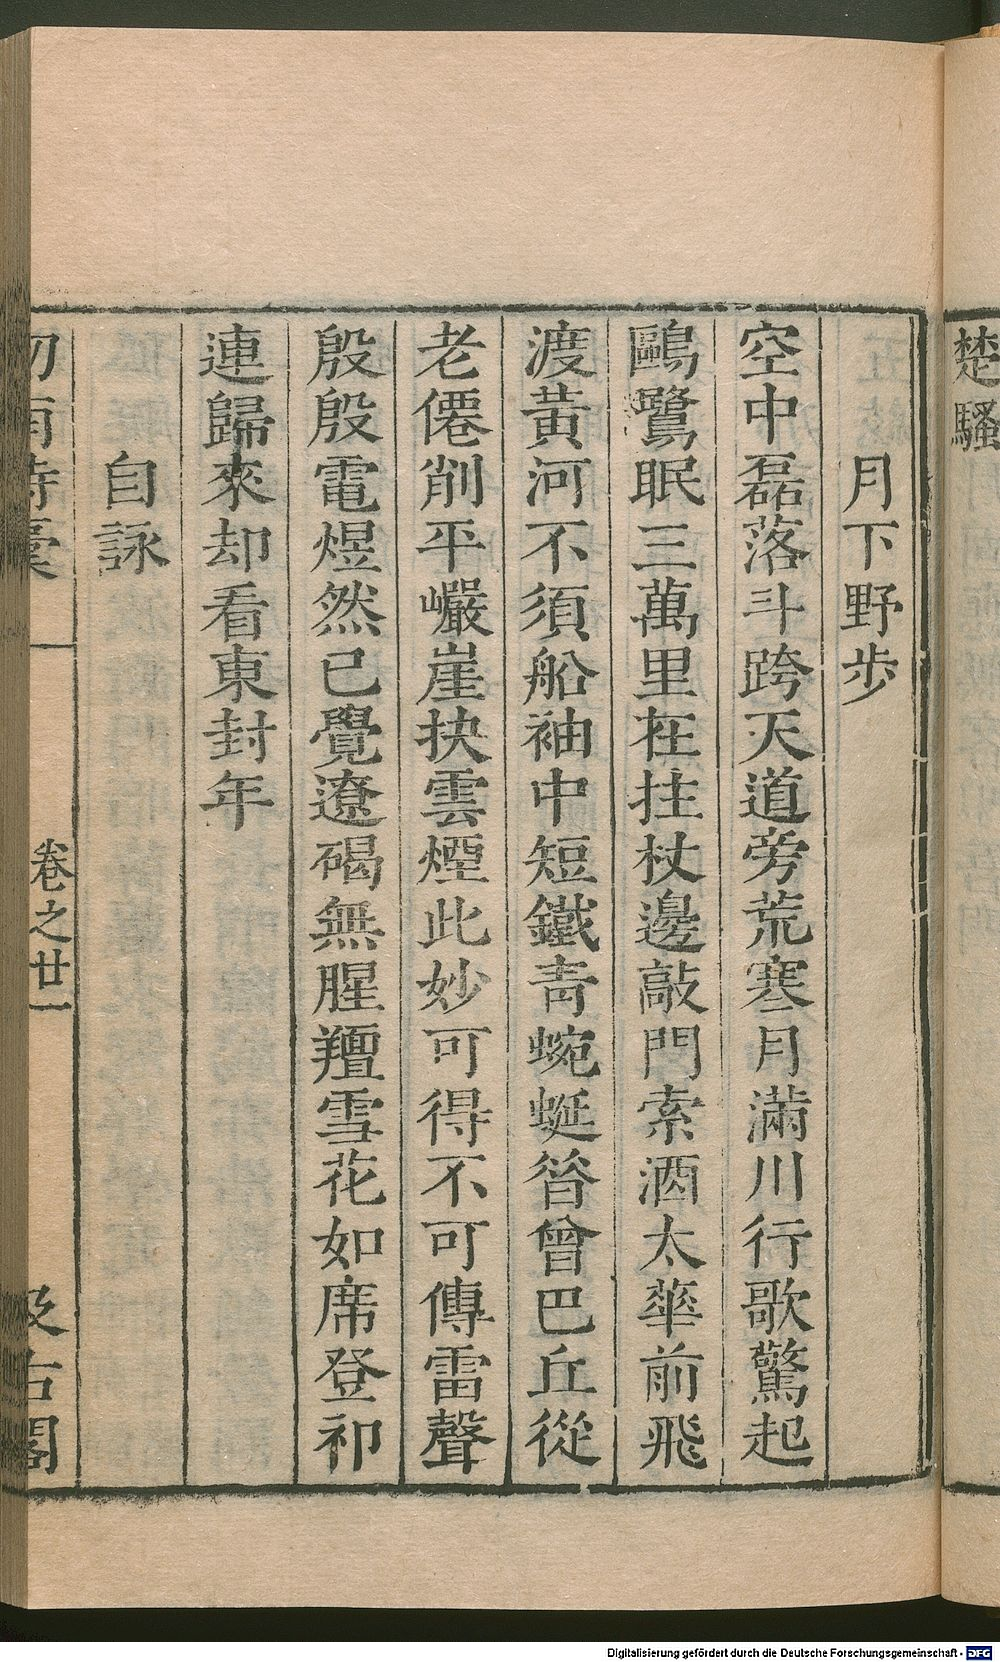 楚騷
月下野步
空中磊落斗跨天道旁荒寒月滿川行歌驚起
鷗鷺眠三萬里在拄杖邊敲門索酒太華前飛
渡黃河不須船袖中短鐵青蜿蜒昝曾巴丘從
老僊削平巗崖抉雲煙此妙可得不可傳雷聲
殷殷電煜然已覺遼碣無腥羶雪花如席登祁
連歸來却看東封年
自詠
劒南詩稾 卷之廿一 汲古閣
Digitalisierung gefördert durch die Deutsche Forschungsgemeinschaft - DFG